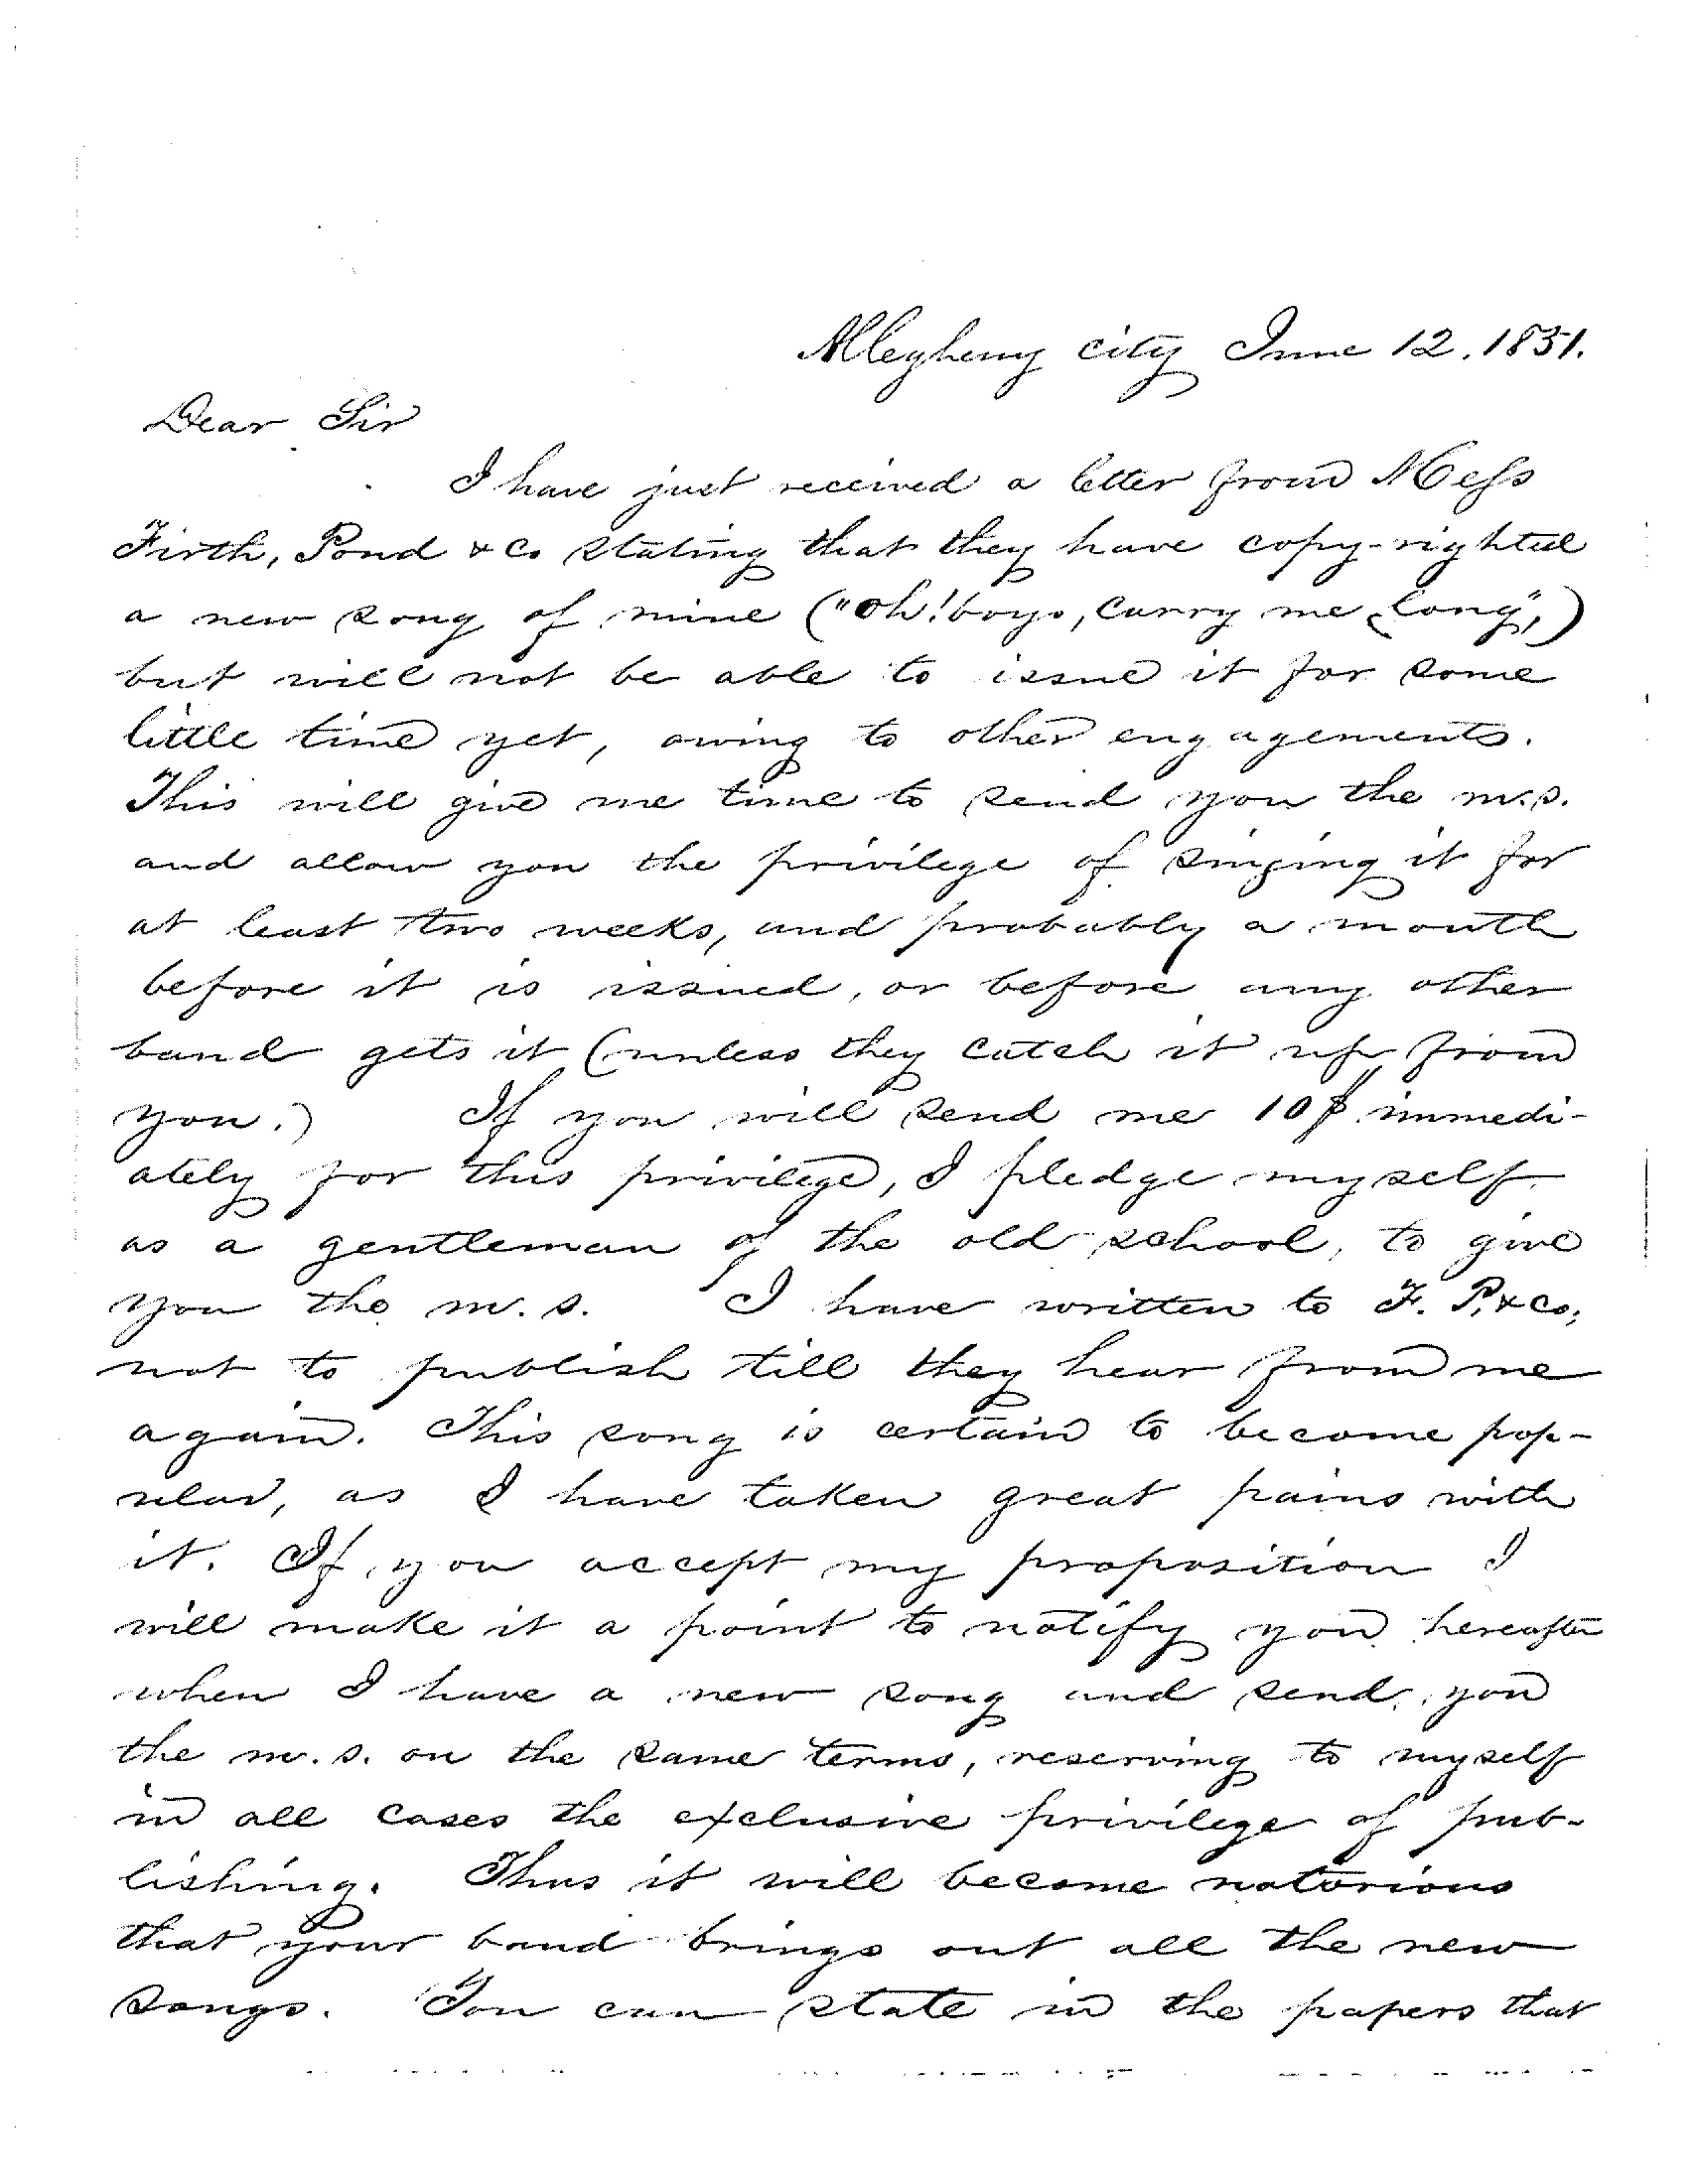 Allegheny city June 12. 1851.
Dear Sir
I have just received a letter from Mess
Firth, Pond & Co stating that they have copy-righted
a new song of mine ("Oh! boys, carry me 'long",)
but will not be able to issue it for some
little time yet, owing to other engagements.
This will give me time to send you the m.s.
and allow you the privilege of singing it for
at least two weeks, and probably a month
before it is issued, or before any other
band gets it (unless they catch it up from
you.) If you will send me 10$ immedi-
ately for this privilege, I pledge myself
as a gentleman of the old school, to give
you the m.s. I have written to F. P. & Co,
not to publish till they hear from me
again. This song is certain to become pop-
ular, as I have taken great pains with
it. If you accept my proposition I
will make it a point to notify you hereafter
when I have a new song and send you
the m.s. on the same terms, reserving to myself
in all cases the exclusive privilege of pub-
lishing. Thus it will become notorious
that your band brings out all the new
songs. You can state in the papers that